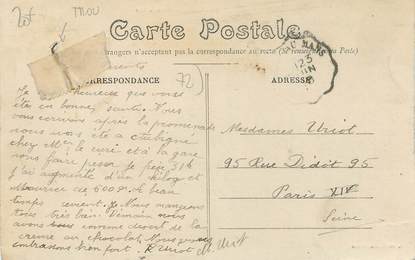 TROU
Carte Postale
étrangers n'acceptent pas la correspondance au recto (Se renseigner à la Poste)
CORRESPONDANCE
ADRESSE
72
MANS
Je heureuse que vous
êtes en bonne santé. Nous
vous écrivons après la promenade
nous nous été a Aubigné
chez Mr le curé et à la gare
nous faire peser je pèse 31k
j'ai augmenté d'un kilog et
Maurice de 600g. Le beau
temps revient. Je Nous mangeons
tous très bien. Demain nous
avons comme dessert de la
creme au chocolat. Nous vous
embrassons bien fort. Uriot
Mesdames Uriot
95 Rue Didot 95
Paris XIV
Seine